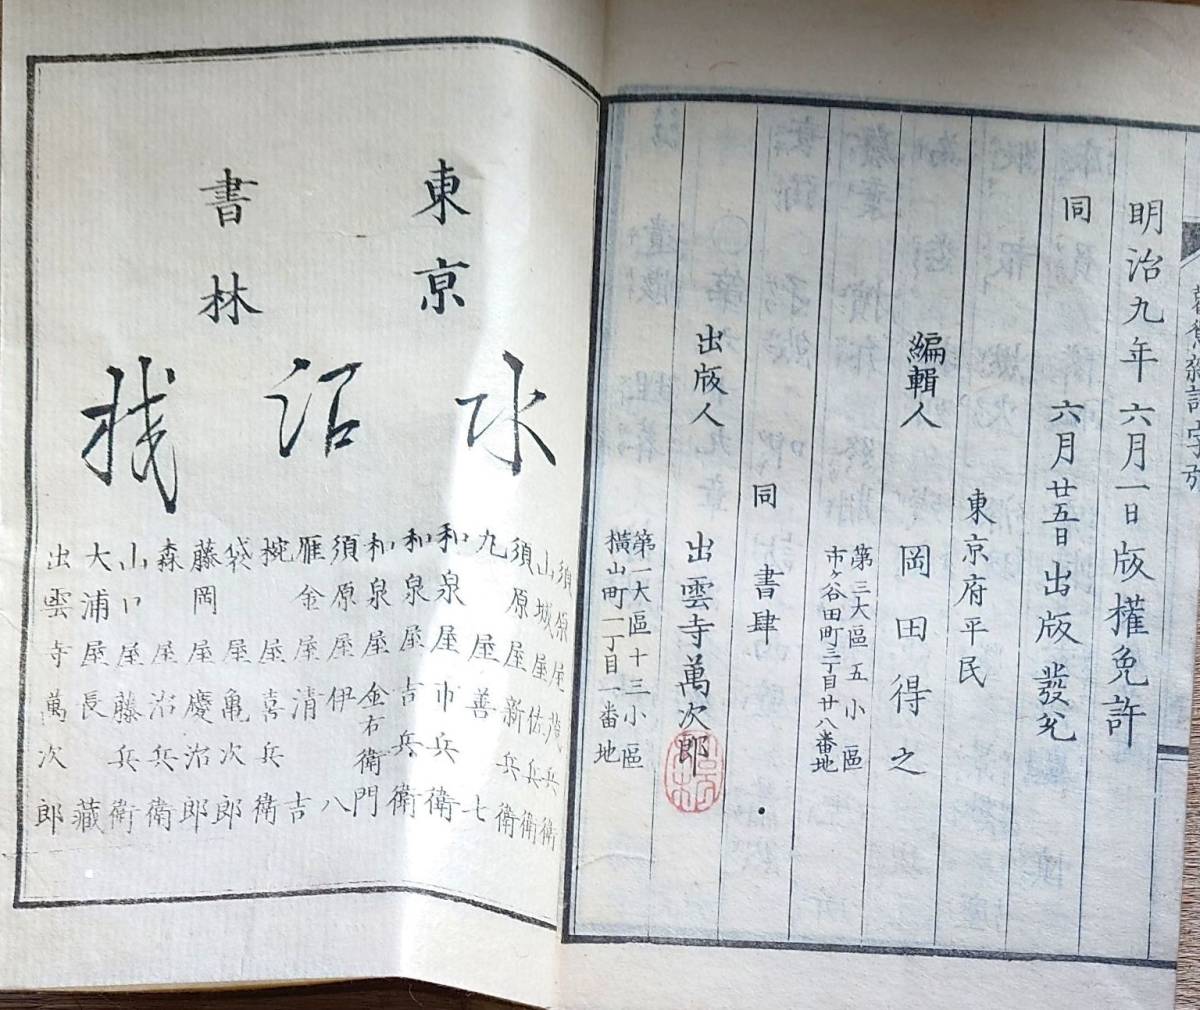 明治九年六月一日版權免許
同　六月廿五日出版發兌
東京府平民
編輯人　岡田得之
第三大區五小區
市ヶ谷田町三丁目廿八番地
同　書肆
出版人　出雲寺萬次郎
第一大區十三小區
横山町一丁目一番地
東京
書林
須原屋茂兵衛
山城屋佐兵衛
須原屋新兵衛
九屋善七
和泉屋市兵衛
和泉屋吉兵衛
和泉屋金右衛門
須原屋伊八
雁金屋清吉
椀屋喜兵衛
袋屋亀次郎
藤岡屋慶治郎
森屋治兵衛
山口屋藤兵衛
大浦屋長藏
出雲寺萬次郎